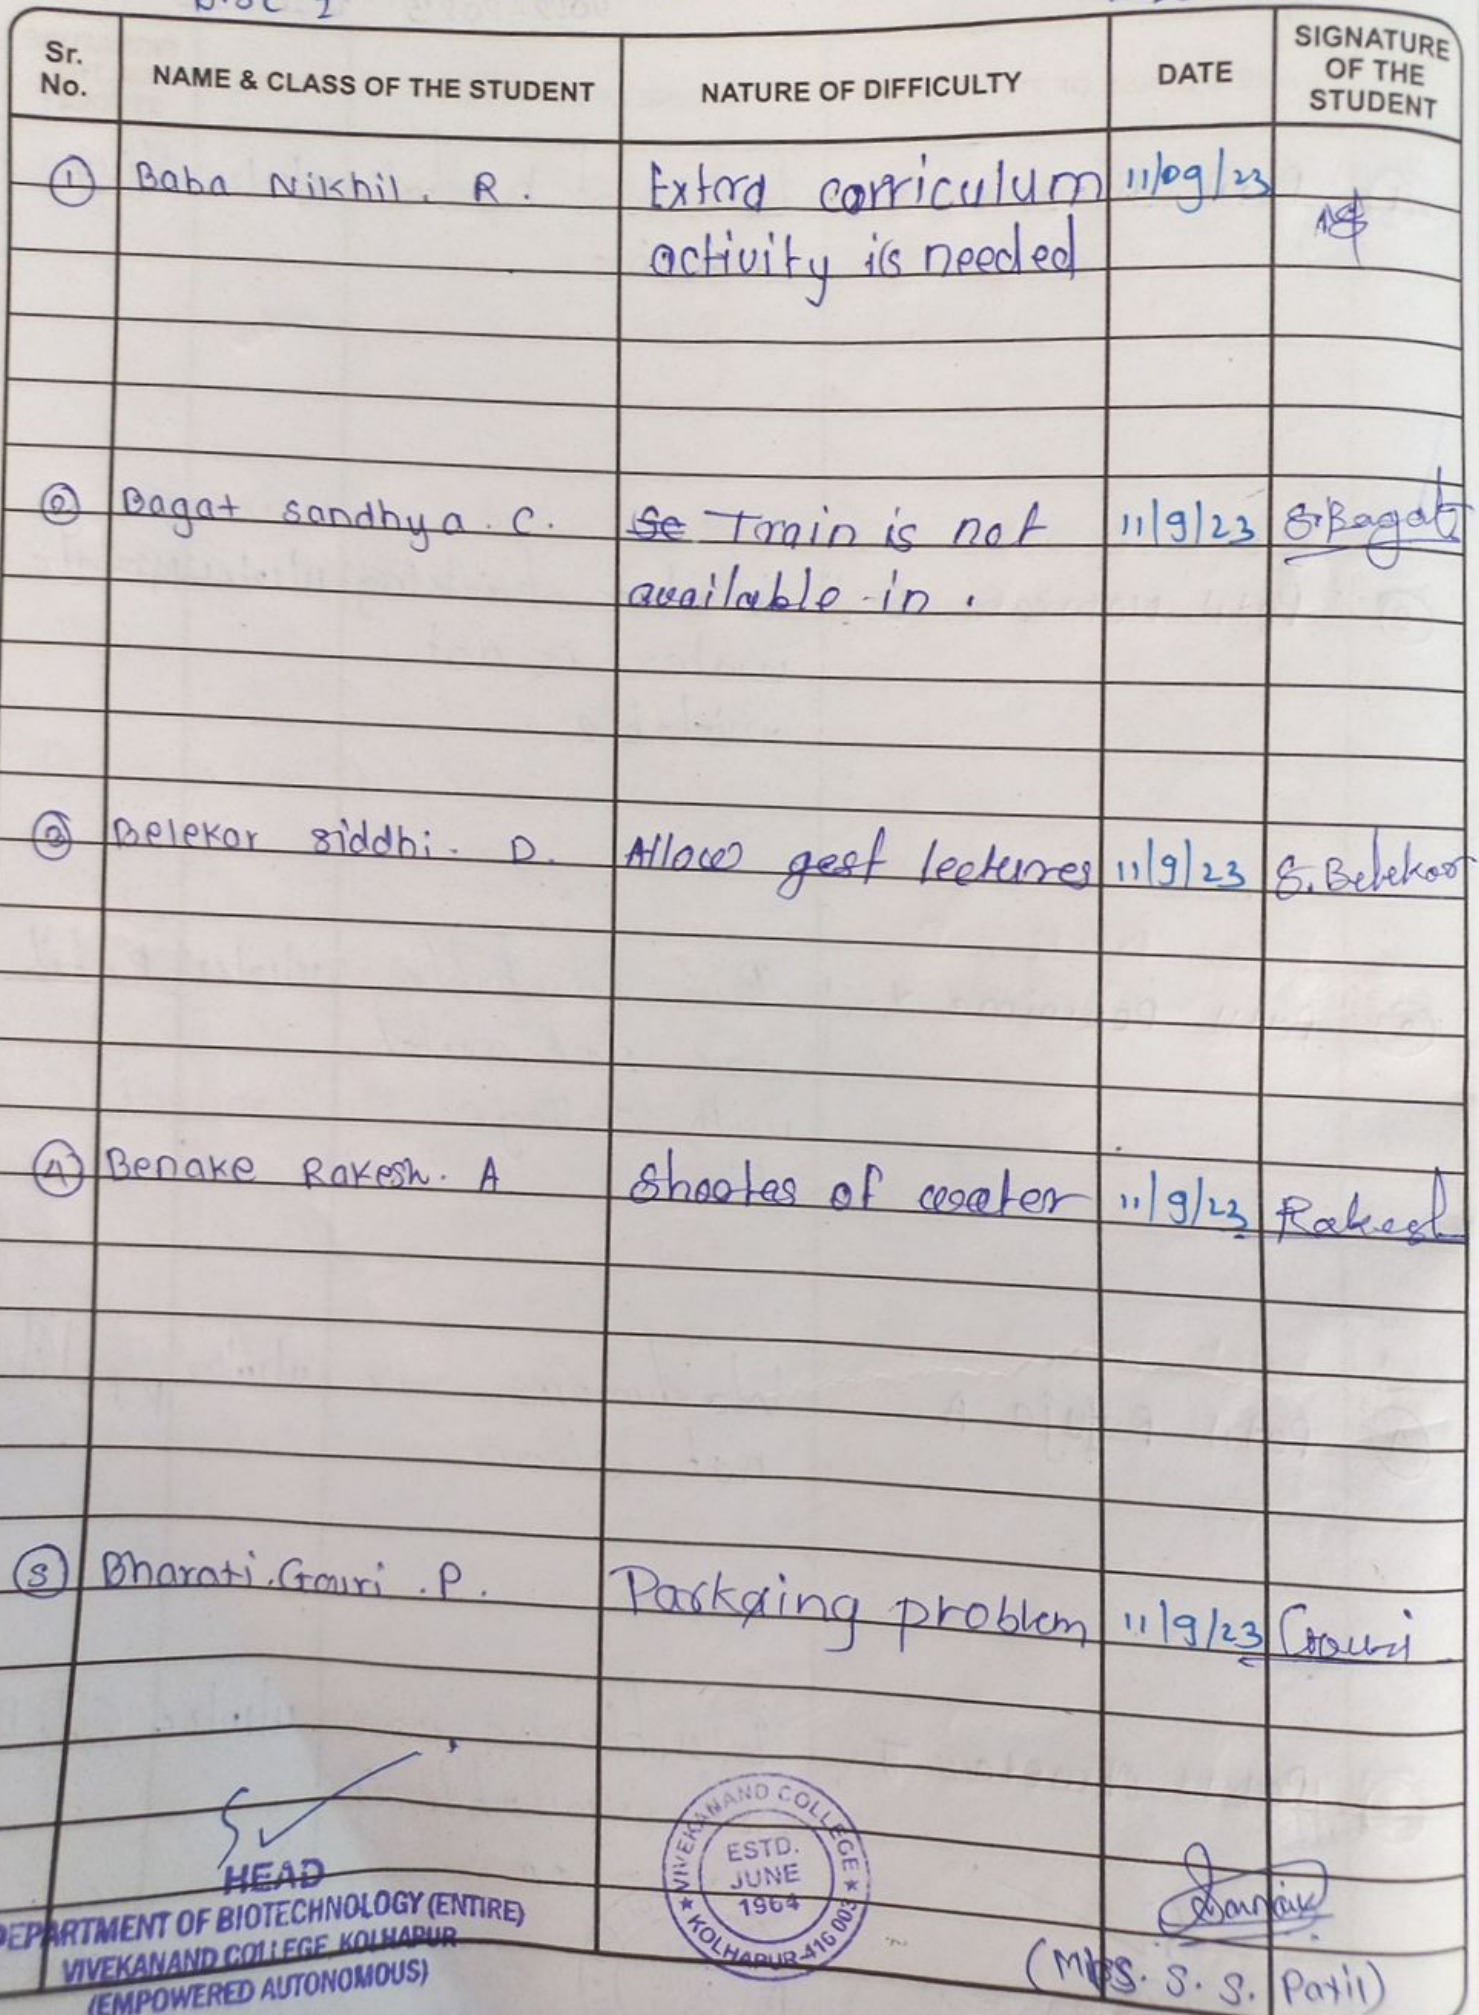 Sr. No.
NAME & CLASS OF THE STUDENT
NATURE OF DIFFICULTY
DATE
SIGNATURE OF THE STUDENT
① Baba Nikhil. R. Extra corriculum 11/09/23
activity is needed
② Bagat Sandhya. C. Train is not 11/9/23 S.Bagat
available in.
③ Belekar Siddhi. D. Allow gest lectures 11/9/23 S.Belekar
④ Benake Rakesh. A Shootes of water 11/9/23 Rakesh
⑤ Bharati.Gauri.P. Parkaing problem 11/9/23 Gauri
HEAD
DEPARTMENT OF BIOTECHNOLOGY (ENTIRE)
VIVEKANAND COLLEGE, KOLHAPUR
(EMPOWERED AUTONOMOUS)
VIVEKANAND COLLEGE
ESTD.
JUNE
1964
KOLHAPUR-416 003
S. S. Patil)